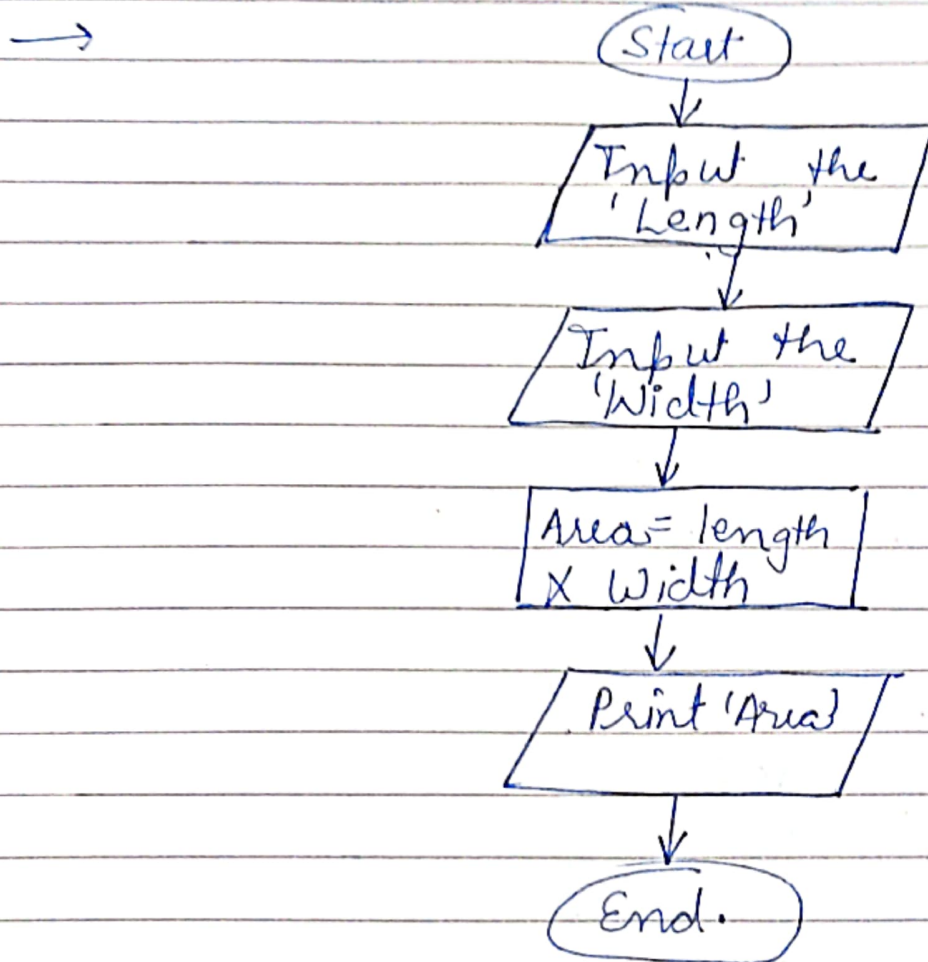 Start
Input the
'Length'
Input the
'Width'
Area = length
X Width
Print 'Area'
End.